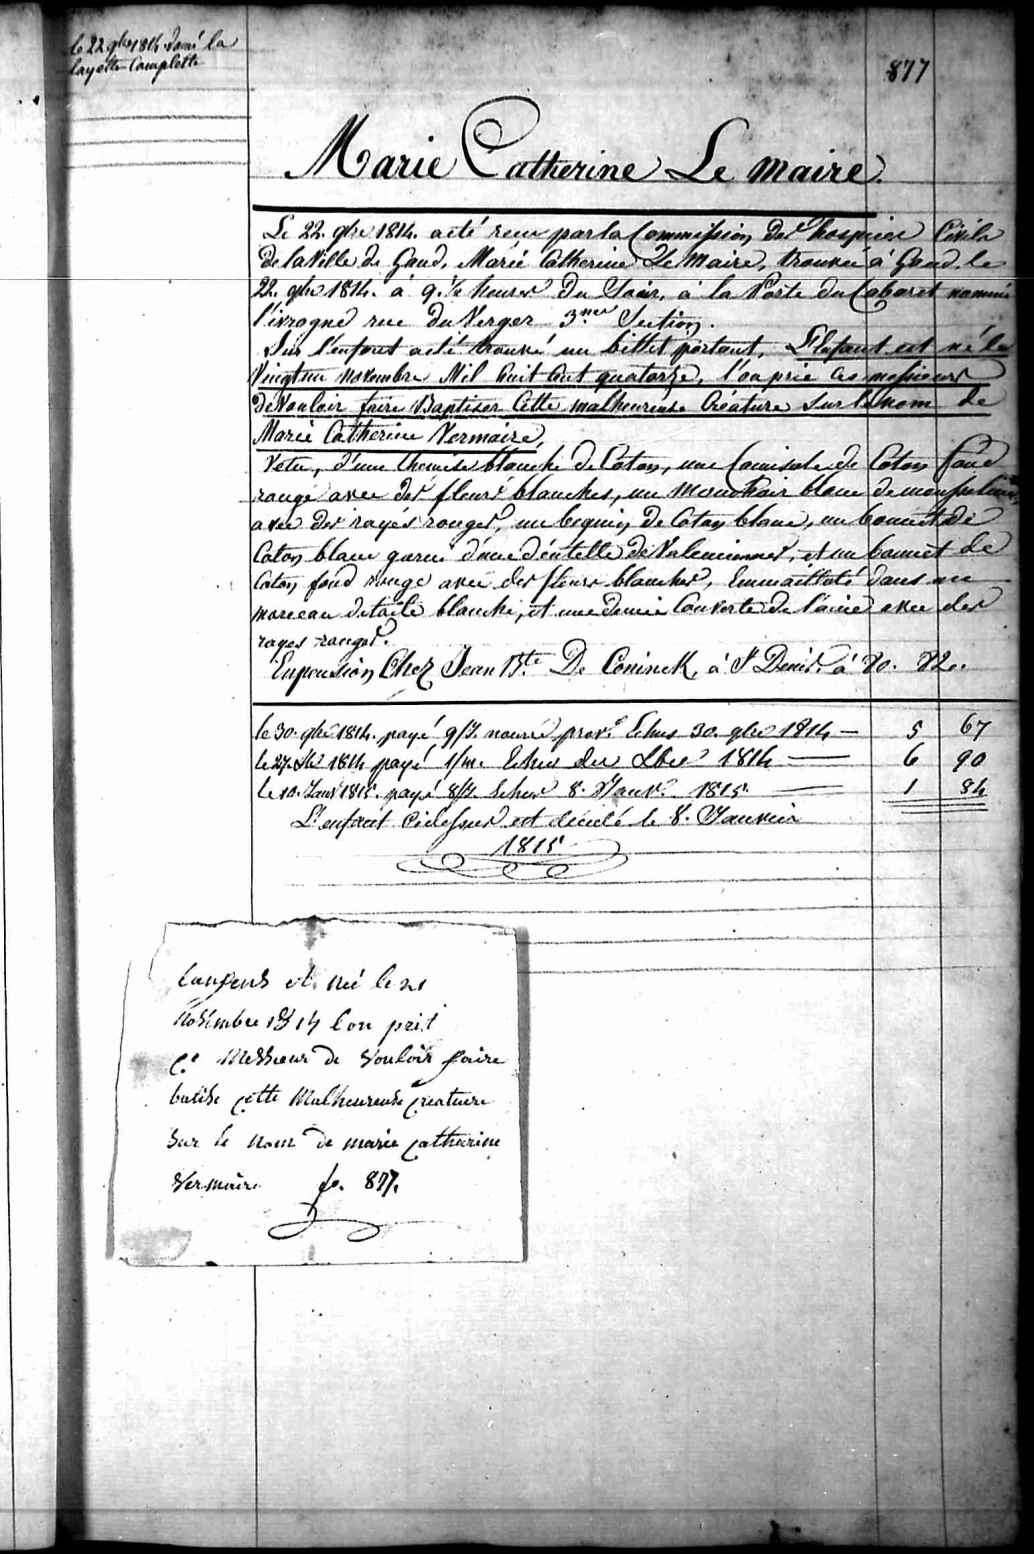 le 22 gbre 1814 donné la
layette Complette
877
Marie Catherine Le maire.
Le 22. gbre 1814. a été recu par la Commission des hospices Civils
de la Ville de Gand, Marie Catherine Le Maire, trouvée à Gand, le
22. gbre 1814. à 9. 1/2 heures du Soir, à la Porte du Cabaret nommé
l'ivrogne rue du Verger 3.me Section.
Sur l'enfant a été trouvé un billet portant, L'Enfant est né le
Vingt un novembre Mil huit Cent quatorze, l'on prie ces messieurs
de Vouloir faire Baptiser Cette malheureuse Créature Sur le nom de
Marie Catherine Vermaire,
Vetu, d'une Chemise blanche de Coton, une Camisole de Coton fond
rouge avec des fleurs blanches, un Mouchoir blanc de mousseline
avec des rayés rouges, un beguin de Coton blanc, un bonnet de
Coton blanc garni d'une dentelle de Valenciennes, et un bonnet de
Coton fond rouge avec des fleurs blanches, Emmailloté dans un
morceau de toile blanche, et une demie Couverte de laine avec des
rayes rouges.
En pension Chez Jean Bte. De Coninck, à St Denis. à
le 30. gbre 1814. payé 9/J. Echus 30. gbre 1814 — 5 67
payé 1/m. Echus 1814 — 6 90
le 10. Janv 1815. payé 8/J. Echus 8. Janv. 1815. — 1 84
L'enfant Cidessus est décédé le 8. Janvier
1815
Lanfend et né le 21
Novimbre 1814 lon prit
Ce Messieur de vouloir faire
batise cette Malheureuse Creature
Sur le Nom de marie Catherine
Vermaire fo. 877.